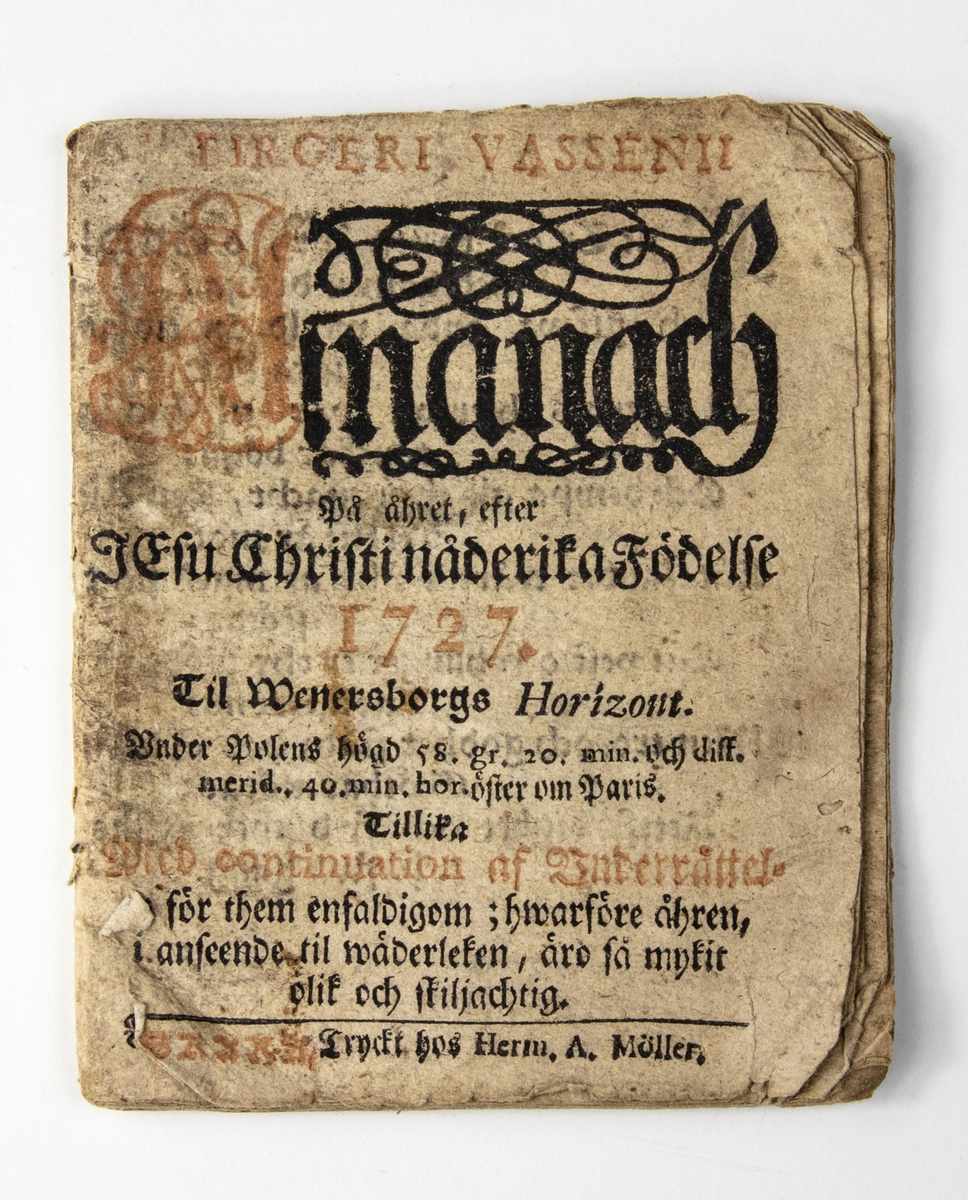 BIRGERI VASSENII
Almanach
På åhret, efter
JEsu Christi nåderika Födelse
1727.
Til Wenersborgs Horizont.
Vnder Polens högd 58. gr. 20. min. och diff.
merid., 40. min. hor. öster om Paris.
Tillika
Med continuation af Vnderråttel-
för them enfaldigom ; hwarföre åhren,
i anseende til wäderleken, äro så mykit
olik och skiljachtig.
Tryckt hos Herm. A. Möller.